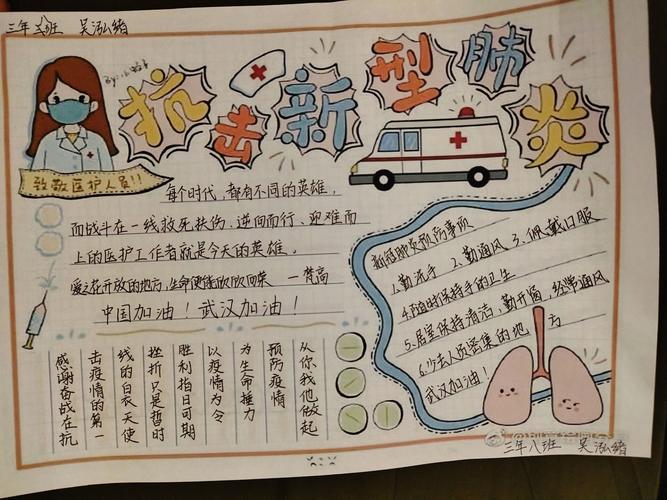 三年八班 吴泓绪
抗击新型肺炎
致敬医护人员!!
每个时代,都有不同的英雄,
而战斗在一线救死扶伤、逆向而行、迎难而
上的医护工作者就是今天的英雄。
爱之花开放的地方,生命便能欣欣向荣 —梵高
中国加油!武汉加油!
从你我他做起
预防疫情
为生命接力
以疫情为令
胜利指日可期
挫折只是暂时
线的白衣天使
击疫情的第一
感谢奋战在抗
新冠肺炎预防事项
1.勤洗手 2.勤通风 3.佩戴口服
4.随时保持手的卫生
5.居室保持清洁,勤开窗,经常通风
6.少去人员密集的地方
武汉加油!
三年八班 吴泓绪